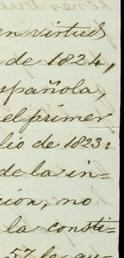 en virtud
de 1824,
española,
el primer
lio de 1823:
de la in-
cion, no
la consti-
57 la au-